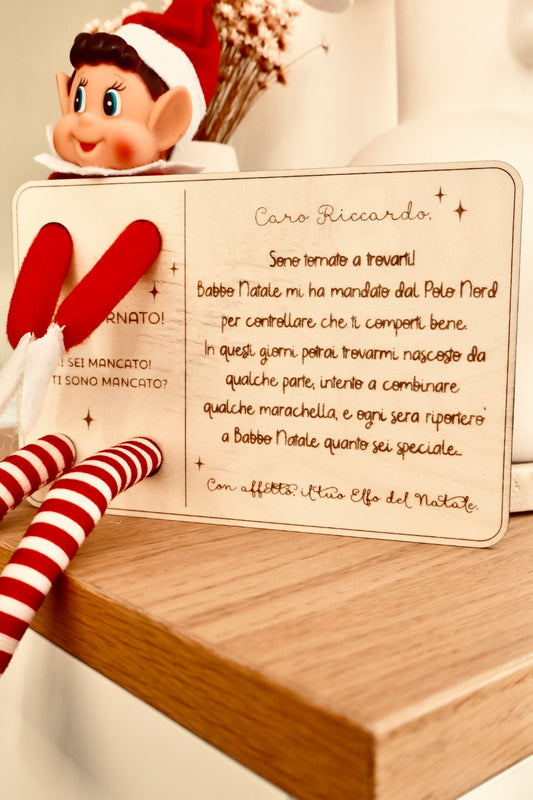 MANCATO!
TI SONO MANCATO?
Caro Riccardo,
Sono tornato a trovarti!
Babbo Natale mi ha mandato dal Polo Nord
per controllare che ti comporti bene.
In questi giorni potrai trovarmi nascosto da
qualche parte, intento a combinare
qualche marachella, e ogni sera riporterò
a Babbo Natale quanto sei speciale...
Con affetto, il tuo Elfo del Natale.